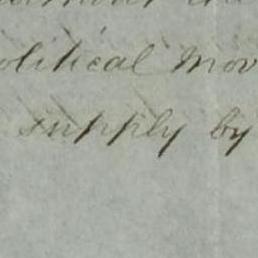 olitical mov
supply by